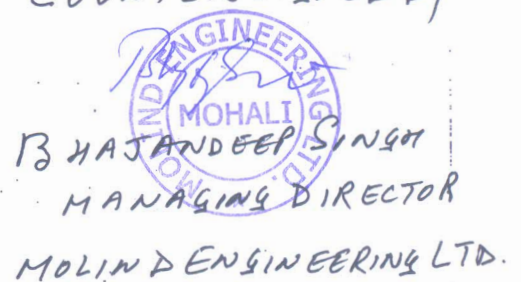 MOLIND ENGINEERING LTD.
MOHALI
BHAJANDEEP SINGH
MANAGING DIRECTOR
MOLIND ENGINEERING LTD.